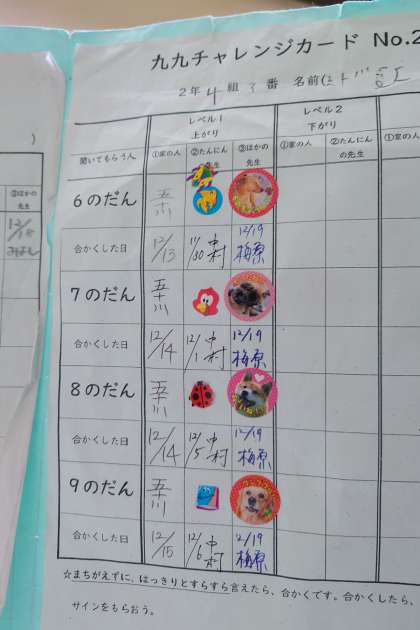 九九チャレンジカード No.2
2年 4 組 3 番 名前(
レベル1
上がり
レベル2
下がり
聞いてもらう人 ①家の人 ②たんにんの先生 ③ほかの先生 ①家の人 ②たんにんの先生 ③ほかの
6のだん 五十川
合かくした日 12/13 11/30 中村 12/19 梅原
7のだん 五十川
合かくした日 12/14 12/1 中村 12/19 梅原
8のだん 五十川
合かくした日 12/14 12/5 中村 12/19 梅原
9のだん 五十川
合かくした日 12/15 12/6 中村 12/19 梅原
☆まちがえずに、はっきりとすらすら言えたら、合かくです。合かくしたら、
サインをもらおう。
③ほかの先生
12/18